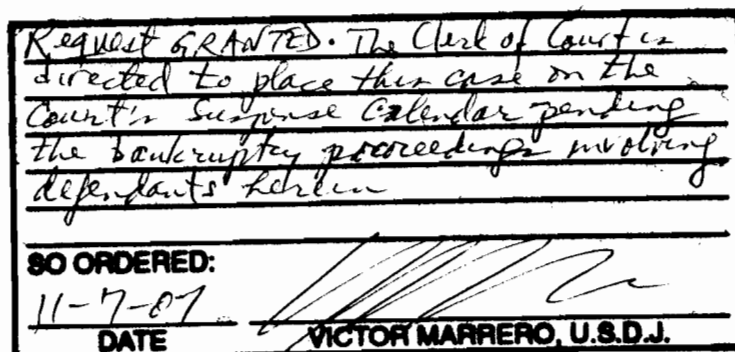 Request GRANTED. The Clerk of Court is
directed to place this case on the
Court's Suspense Calendar pending
the bankruptcy proceedings involving
defendants herein
SO ORDERED:
11-7-07
DATE VICTOR MARRERO, U.S.D.J.